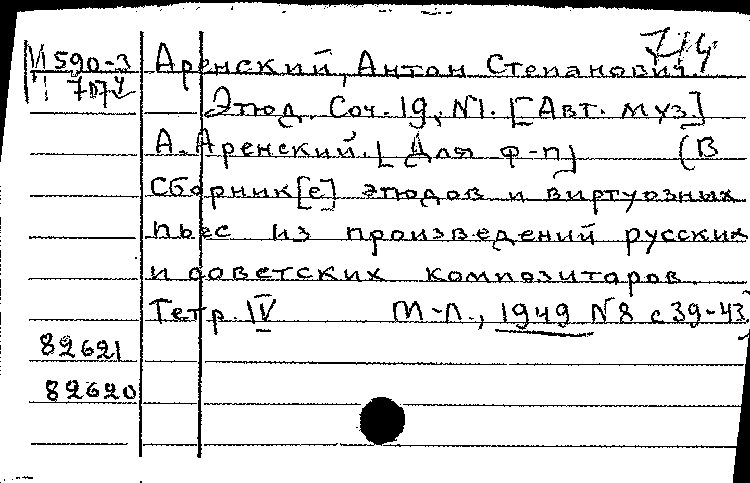 714
М 590-3 Аренский, Антон Степанович.
Этюд. Соч. 19, №1. [Авт. муз.]
А. Аренский. [Для ф-п] (В
Сборник[е] этюдов и виртуозных
пьес из произведений русских
и советских композиторов.
Тетр. IV М-Л., 1949 №8 с 39-43)
82621
82620